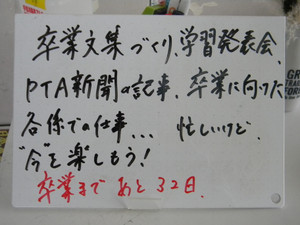 卒業文集づくり、学習発表会、
PTA新聞の記事、卒業に向けた
各係での仕事... 忙しいけど、
"今"を楽しもう!
卒業まであと32日